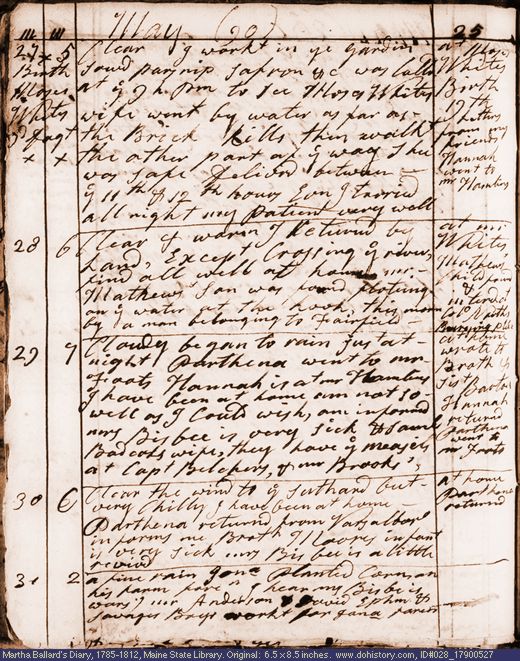 May (90)
25
27 5 Clear I workt in ye gardin at Moses
Birth sowd parsnip Safron &c was Calld Whites
Moses at 9 h pm to See Moses Whites Birth
Whites wife went by water as far as 19th
the Brick Kills then walkt Letters
X X the other part of ye way She from my
was Safe Deliv between friends
ye 11th & 12th hours Son I tarried Hannah
all night my Patient very well went to
mr Hamlins
28 6 Clear & warm I Returned by at mr
Land, Except Crossing ye river Whites
find all well at home mr Mathews
Mathews Son was found floating Child found
on ye water at the hook, this morn &
by a man belonging to Fairfield interd at
Burying place
29 7 Cloudy began to rain Just at at home
night Parthena went to mr wrote to
Foots Hannah is at mr Hamlins Broth
I have been at home am not So Sister
well as I Could wish, am informd Barton
mrs Bisbee is very Sick & Saml Hannah
Badcoks wife, they have ye measels returnd
at Capt Belchers, & mr Brooks Parthena
went to
mr Foots
30 C Clear the wind to ye Suthard but at home
very Chilly I have been at home Parthena
Parthena returnd from returned
informs me Broth Moores infant
is very Sick mrs Bisbee is a little
revivd
31 2 a fine rain planted Corn on
his farm I hear mrs Bisbe is
wors mr Anderson & David
Savages Boys workt for
Martha Ballard's Diary, 1785-1812, Maine State Library. Original: 6.5 x 8.5 inches. www.dohistory.com, ID#028_17900527